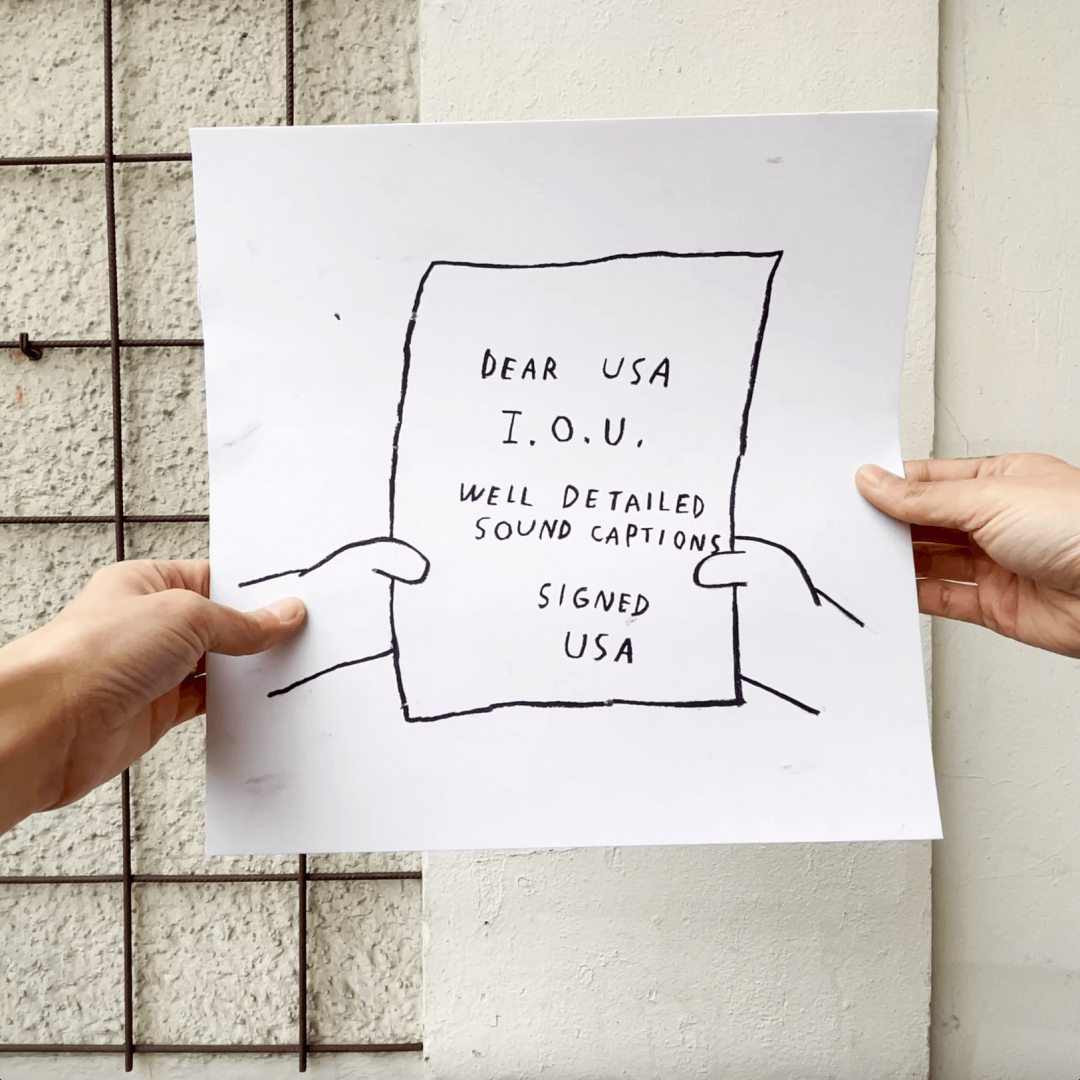 DEAR USA
I.O.U.
WELL DETAILED
SOUND CAPTIONS
SIGNED
USA